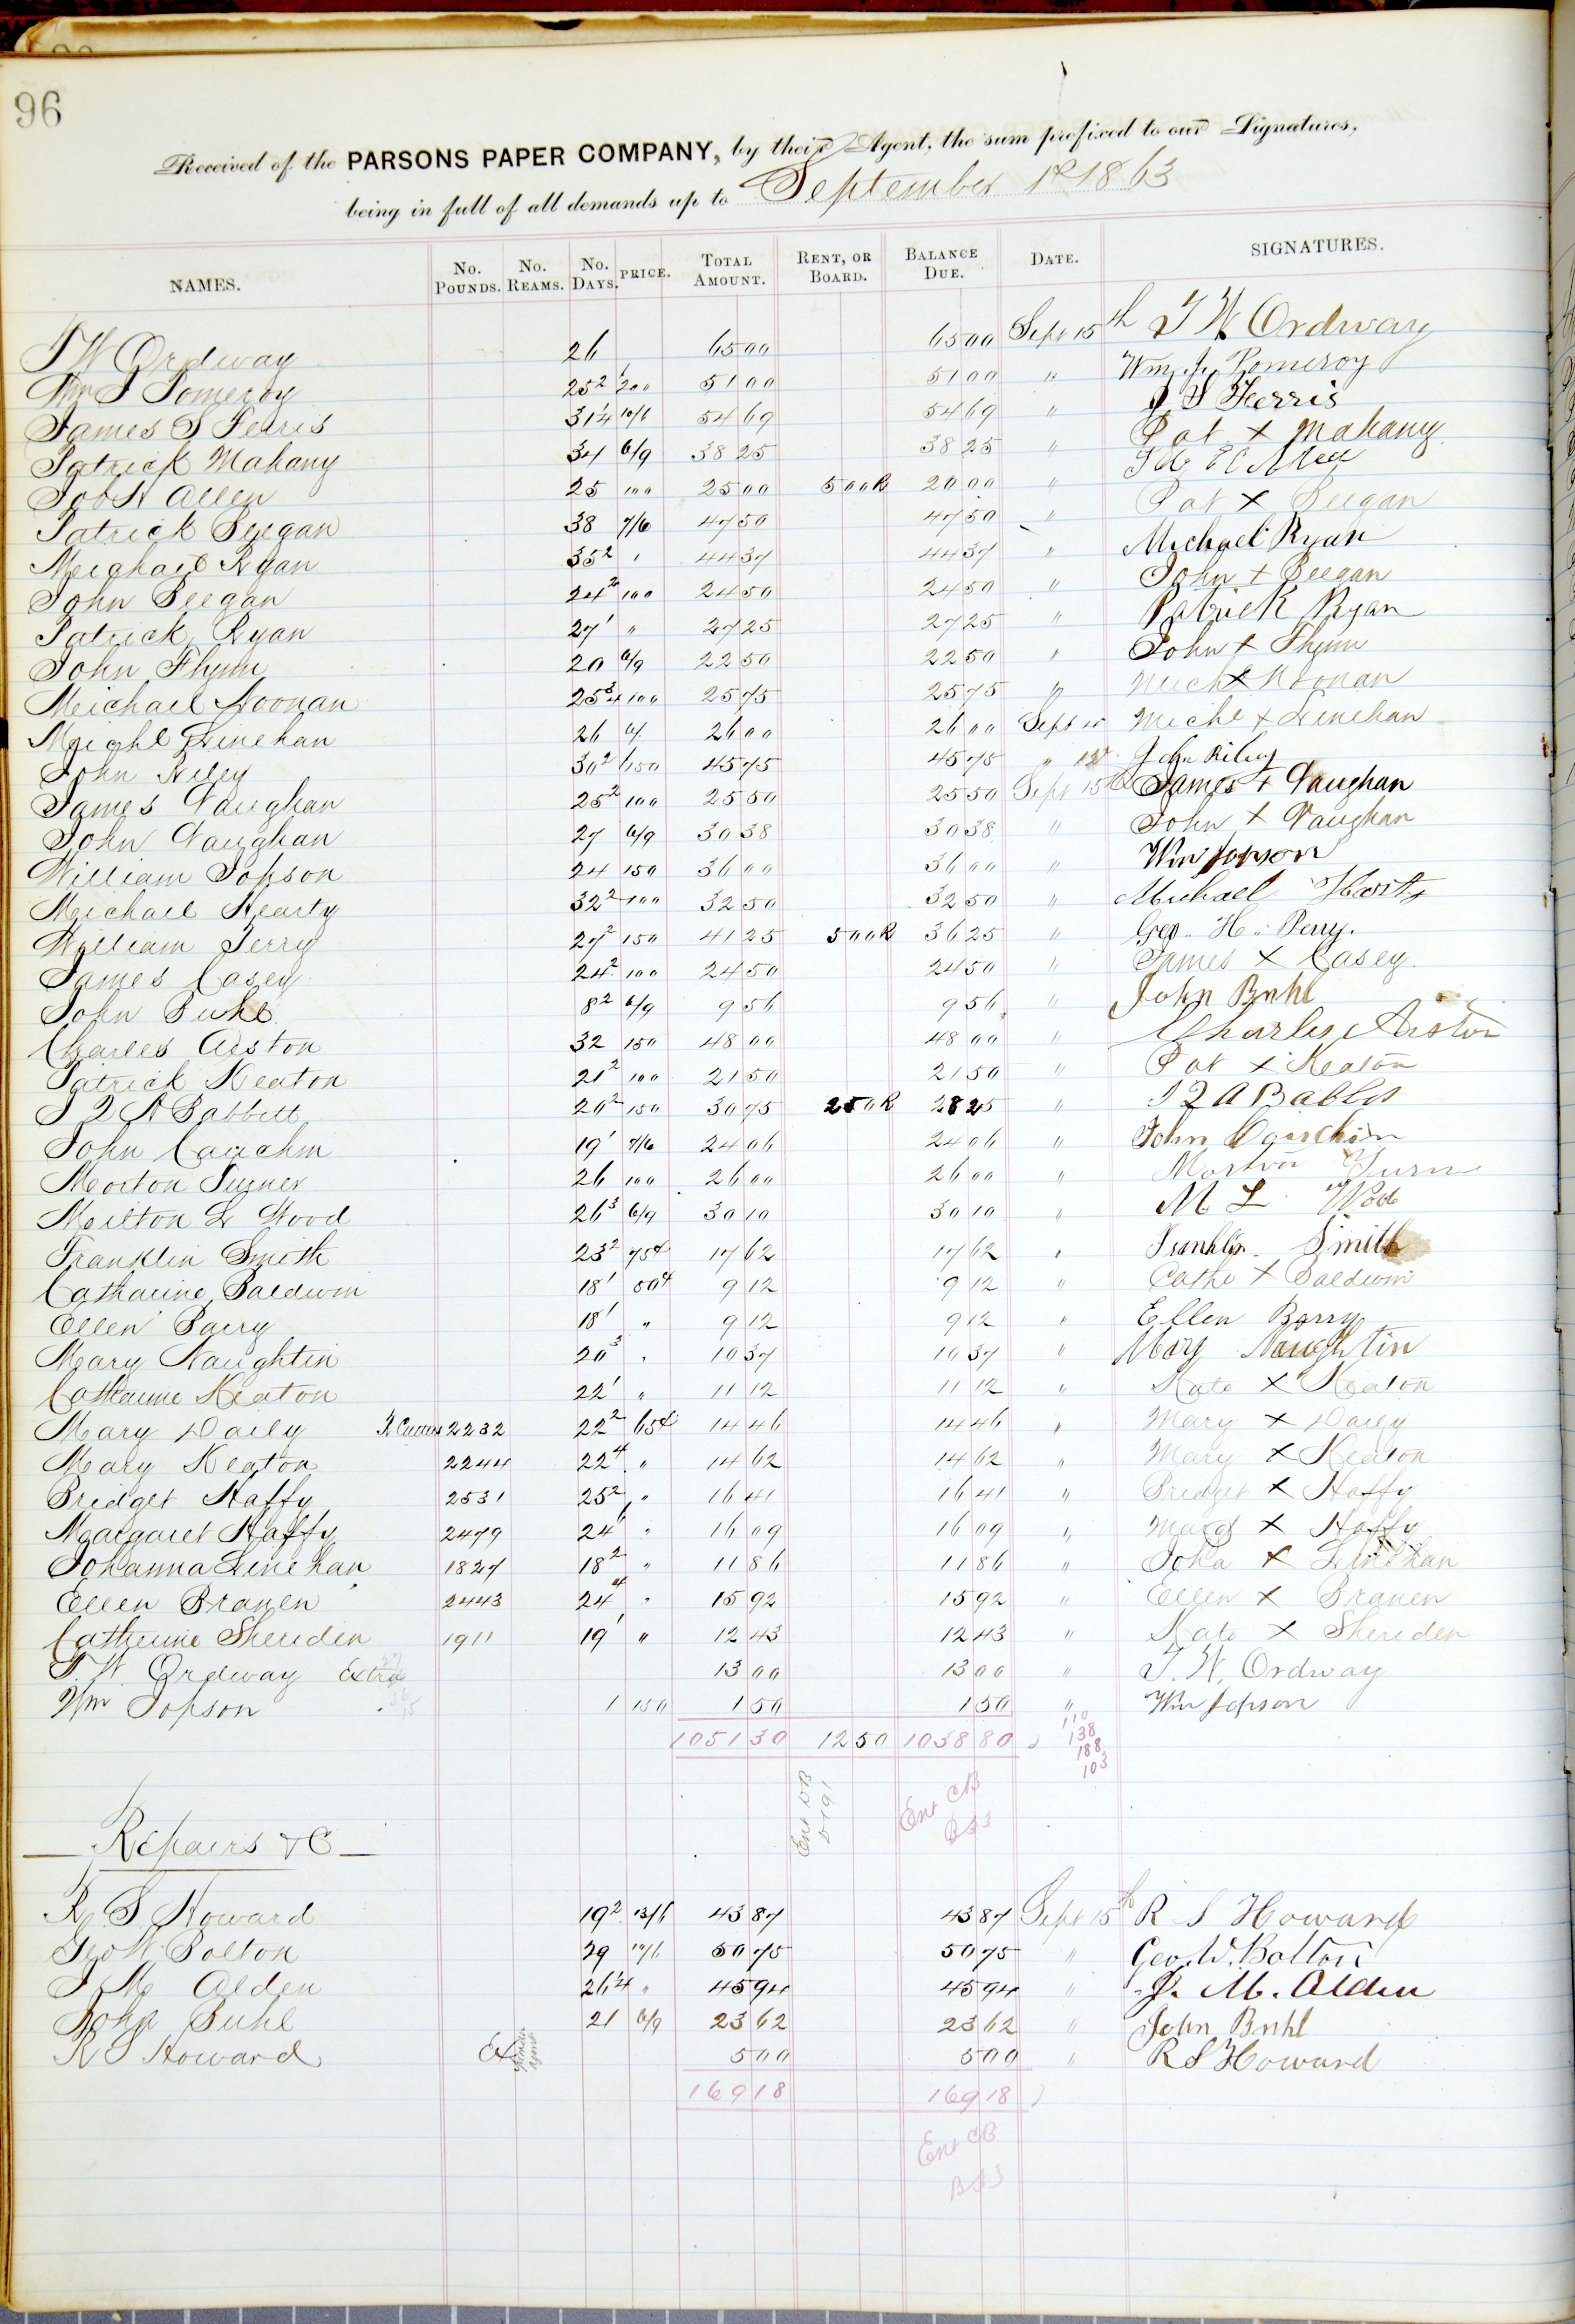 96
Received of the PARSONS PAPER COMPANY, by their Agent, the sum prefixed to our Signatures,
being in full of all demands up to September 1st 1863
NAMES. No. Pounds. No. Reams. No. Days. PRICE. Total Amount. Rent, or Board. Balance Due. Date. SIGNATURES.
T W Ordway 26 65 00 65 00 Sept 15th T W Ordway
Wm J Pomeroy 25 2 2 00 51 00 51 00 " Wm J. Pomeroy
James S Ferris 31 1/4 10/6 54 69 54 69 " J S Ferris
Patrick Mahany 34 6/9 38 25 38 25 " Pat x Mahany
Job H Allen 25 1 00 25 00 5 00 R 20 00 "
Patrick Beegan 38 7/6 47 50 47 50 " Pat x Beegan
Meichael Ryan 35 2 " 44 37 44 37 " Michael Ryan
John Beegan 24 2 1 00 24 50 24 50 " John + Beegan
Patrick Ryan 27 1 " 27 25 27 25 " Patrick Ryan
John Flynn 20 6/9 22 50 22 50 " John + Flynn
Meichael Noonan 25 3/4 1 00 25 75 25 75 " Mich x Noonan
Meichl Linehan 26 6/ 26 00 26 00 Sept 15 Michl x Linehan
John Riley 30 2 1 50 45 75 45 75 " John Riley
James Vaughan 25 2 1 00 25 50 25 50 Sept 15th James + Vaughan
John Vaughan 27 6/9 30 38 30 38 " John + Vaughan
William Jopson 24 1 50 36 00 36 00 " Wm Jopson
Meichael Hearty 32 2 1 00 32 50 32 50 " Michael Harty
William Perry 27 2 1 50 41 25 5 00 R 36 25 " Geo. H. Perry.
James Casey 24 2 1 00 24 50 24 50 " James x Casey.
John Buhl 8 2 6/9 9 56 9 56 " John Buhl
Charles Aiston 32 1 50 48 00 48 00 " Charles Aiston
Patrick Keaton 21 2 1 00 21 50 21 50 " Pat x Keaton
J Q A Babbitt 20 2 1 50 30 75 2 50 R 28 25 " J Q A Babbit
John 19 1 7/6 24 06 24 06 " John
Morton Turner 26 1 00 26 00 26 00 " Morton Turn
Meilton L Wood 26 3 6/9 30 10 30 10 " M L Wood
Franklin Smith 23 2 75¢ 17 62 17 62 " Franklin Smith
Catharine Baldwin 18 1 50¢ 9 12 9 12 " Cathe + Baldwin
Ellen Barry 18 1 " 9 12 9 12 " Ellen Barry
Mary Naughtin 20 3 " 10 37 10 37 " Mary Naughtin
Catharine Keaton 22 1 " 11 12 11 12 " Kate x Keaton
Mary Daily 2232 22 2 65¢ 14 46 14 46 " Mary x Daily
Mary Keaton 2244 22 4 " 14 62 14 62 " Mary x Keaton
Bridget Haffy 2531 25 2 " 16 41 16 41 " Bridget x Haffy
Margaret Haffy 2479 24 6 " 16 09 16 09 " Margt x Haffy
Johanna Linehan 1827 18 2 " 11 86 11 86 " Joha x Linehan
Ellen Branen 2443 24 4 " 15 92 15 92 " Ellen x Branen
Catherine Sheriden 1911 19 1 " 12 43 12 43 " Kate x Sheriden
T. W. Ordway Extra 13 00 13 00 " T. W. Ordway
Wm Jopson 1 1 50 1 50 1 50 " Wm Jopson
1051 30 12 50 1038 80
110
138
188
103
Ent DB
Ent CB
Repairs & C
R S Howard 19 2 13/6 43 87 43 87 Sept 15th R S Howard
Geo W. Bolton 29 10/6 50 75 50 75 " Geo. W. Bolton
J M Alden 26 1/4 " 45 94 45 94 " J. M. Alden
John Buhl 21 6/9 23 62 23 62 " John Buhl
R S Howard Ex 5 00 5 00 " R S Howard
169 18 169 18
Ent CB